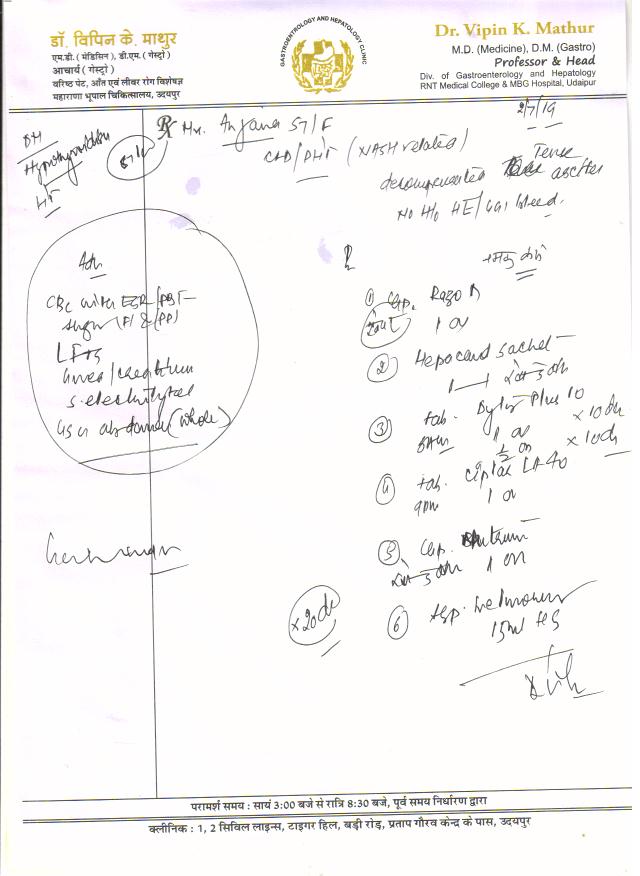 डॉ. विपिन के. माथुर
एम.डी. ( मेडिसिन ), डी.एम. ( गेस्ट्रो )
आचार्य ( गेस्ट्रो )
वरिष्ठ पेट, आँत एवं लीवर रोग विशेषज्ञ
महाराणा भूपाल चिकित्सालय, उदयपुर
GASTROENTROLOGY AND HEPATOLOGY CLINIC
Dr. Vipin K. Mathur
M.D. (Medicine), D.M. (Gastro)
Professor & Head
Div. of Gastroenterology and Hepatology
RNT Medical College & MBG Hospital, Udaipur
2/7/19
DM
HT
57/F
(NASH related)
decompensated Tense
No H/o HE/UGI bleed.
Adv
CBC with ESR/PBF
Sugar (F) & (PP)
LFTs
Urea/Creatinine
S. electrolytes
USG abdomen (whole)
R
नमक कम
① Cap. Razo D
1 OD
② Hepocard sachet
③ tab. Dytor Plus 10
8AM 1 OD x 10 days
1/2 OD x 10 days
④ tab. Ciplar LA 40
9PM 1 OD
⑤ Cap.
1 OD
x 20 days
⑥ Syp.
15ml HS
परामर्श समय : सायं 3:00 बजे से रात्रि 8:30 बजे, पूर्व समय निर्धारण द्वारा
क्लीनिक : 1, 2 सिविल लाइन्स, टाइगर हिल, बड़ी रोड़, प्रताप गौरव केन्द्र के पास, उदयपुर